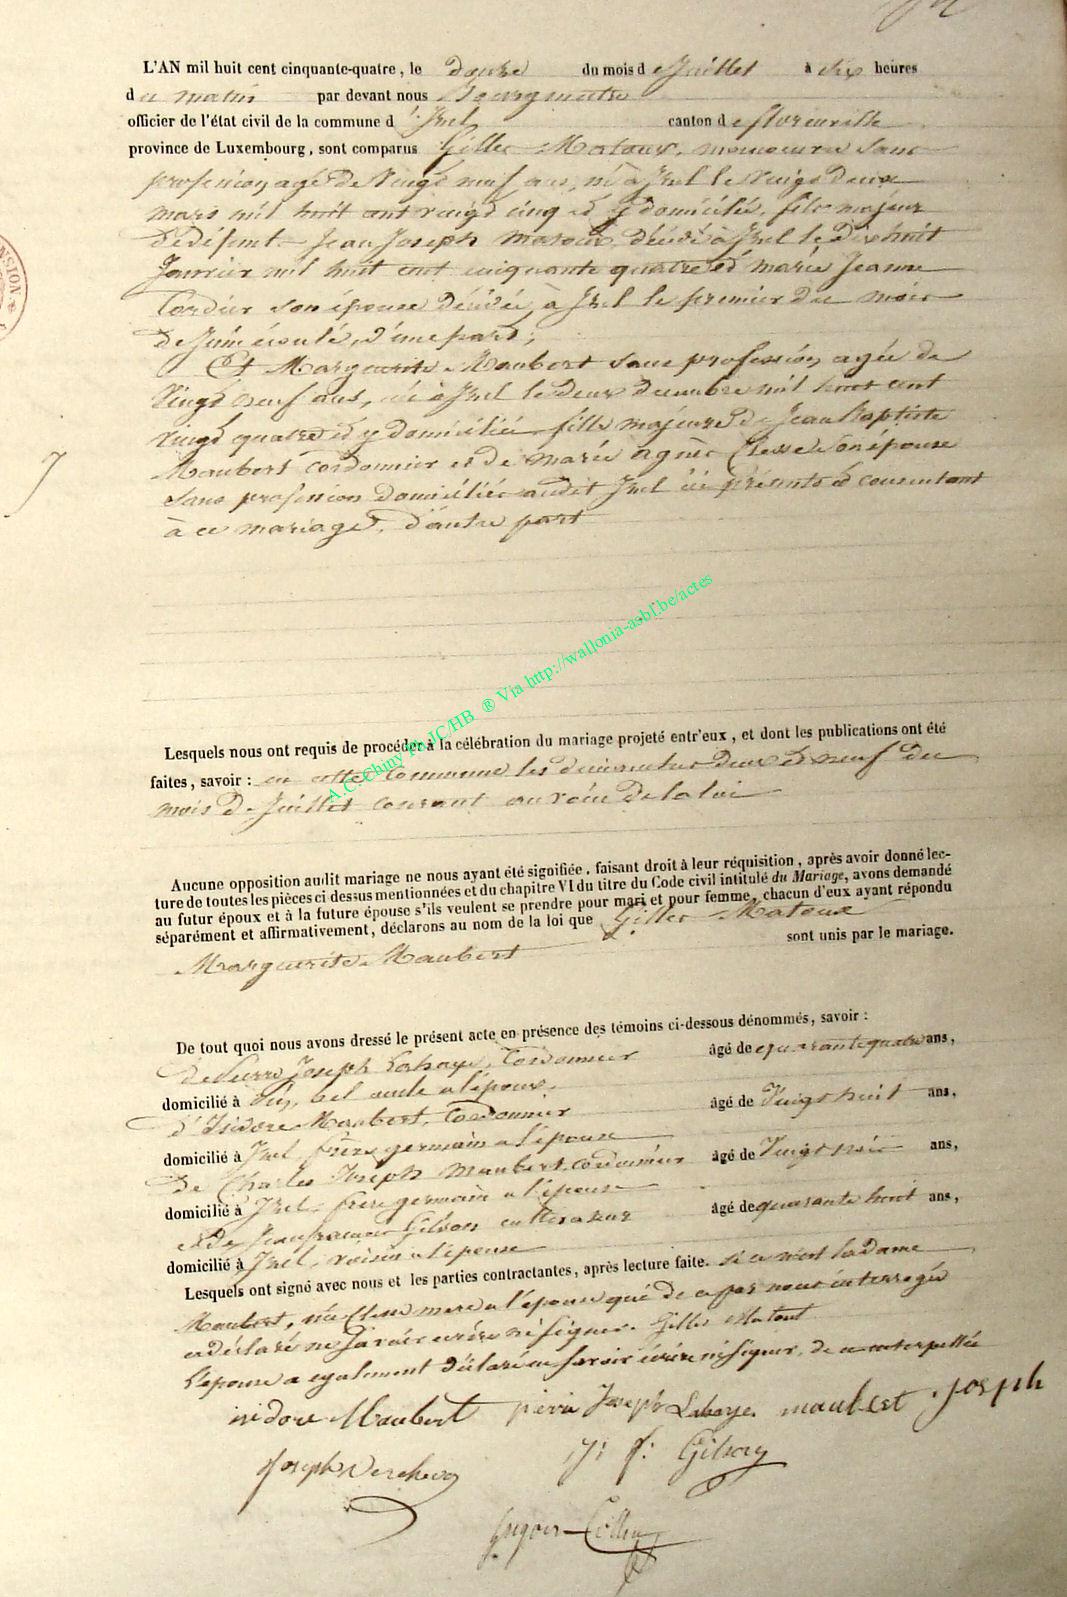 L'AN mil huit cent cinquante-quatre, le douze du mois de Juillet à dix heures
du matin par devant nous Bourgmestre
officier de l'état civil de la commune d'Izel canton de florenville
province de Luxembourg, sont comparus Gilles Matoux, manoeuvre sans
profession, agé de Vingt neuf ans, né à Izel le Vingt Deux
mars mil huit cent vingt cinq et y domicilié, fils majeur
de défunt Jean Joseph Matoux, décédé à Izel le dix huit
Janvier mil huit cent cinquante quatre et marie Jeanne
Cordier son épouse Décédée, à Izel le premier du mois
de Juin écoulé, d'une part;
Et Marguerite Maubert sans profession, agée de
Vingt neuf ans, née à Izel le deux decembre mil huit cent
vingt quatre et y domiciliée fille majeure de Jean Baptiste
Maubert cordonnier et de marie agnès Clesse son épouse
sans profession domiciliés audit Izel ici présents et consentant
à ce mariage, d'autre part
Lesquels nous ont requis de procéder à la célébration du mariage projeté entr'eux, et dont les publications ont été
faites, savoir : en cette Commune les dimanches deux et neuf du
mois de Juillet courant au voeu de la loi
A.C. Chiny Ph JC/HB ® Via http://wallonia-asbl.be/actes
Aucune opposition audit mariage ne nous ayant été signifiée, faisant droit à leur réquisition, après avoir donné lec-
ture de toutes les pièces ci dessus mentionnées et du chapitre VI du titre du Code civil intitulé du Mariage, avons demandé
au futur époux et à la future épouse s'ils veulent se prendre pour mari et pour femme, chacun d'eux ayant répondu
séparément et affirmativement, déclarons au nom de la loi que Gilles Matoux
Marguerite Maubert sont unis par le mariage.
De tout quoi nous avons dressé le présent acte en présence des témoins ci-dessous dénommés, savoir :
de Pierre Joseph Lahaye, Cordonnier âgé de quarante quatre ans,
domicilié à bel oncle a l'épouse,
d'Isidore Maubert, Cordonnier âgé de Vingt huit ans,
domicilié à Izel frère germain a l'épouse
de Charles Joseph Maubert, cordonnier âgé de Vingt ans,
domicilié à Izel, frere germain a l'épouse
et de Jean françois Gilson cultivateur âgé de quarante huit ans,
domicilié à Izel, voisin a l'épouse
Lesquels ont signé avec nous et les parties contractantes, après lecture faite. si ce n'est la dame
Maubert, née Clesse mere a l'épouse qui de ce par nous interrogée
a déclaré ne savoir écrire ni signer. Gilles Matout
l'épouse a egalement déclaré ne savoir écrire ni signer, de ce interpellée
isidore Maubert pierre Joseph Lahaye maubert Joseph
Joseph j: f: Gilson